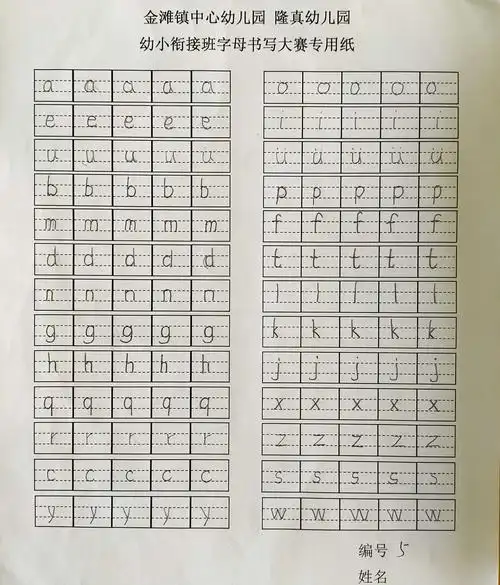 金滩镇中心幼儿园 隆真幼儿园
幼小衔接班字母书写大赛专用纸
a a a a a o o o o o
e e e e e i i i i i
u u u u u ü ü ü ü ü
b b b b b p p p p p
m m m m m f f f f f
d d d d d t t t t t
n n n n n l l l l l
g g g g g k k k k k
h h h h h j j j j j
q q q q q x x x x x
r r r r r z z z z z
c c c c c s s s s s
y y y y y w w w w w
编号 5
姓名